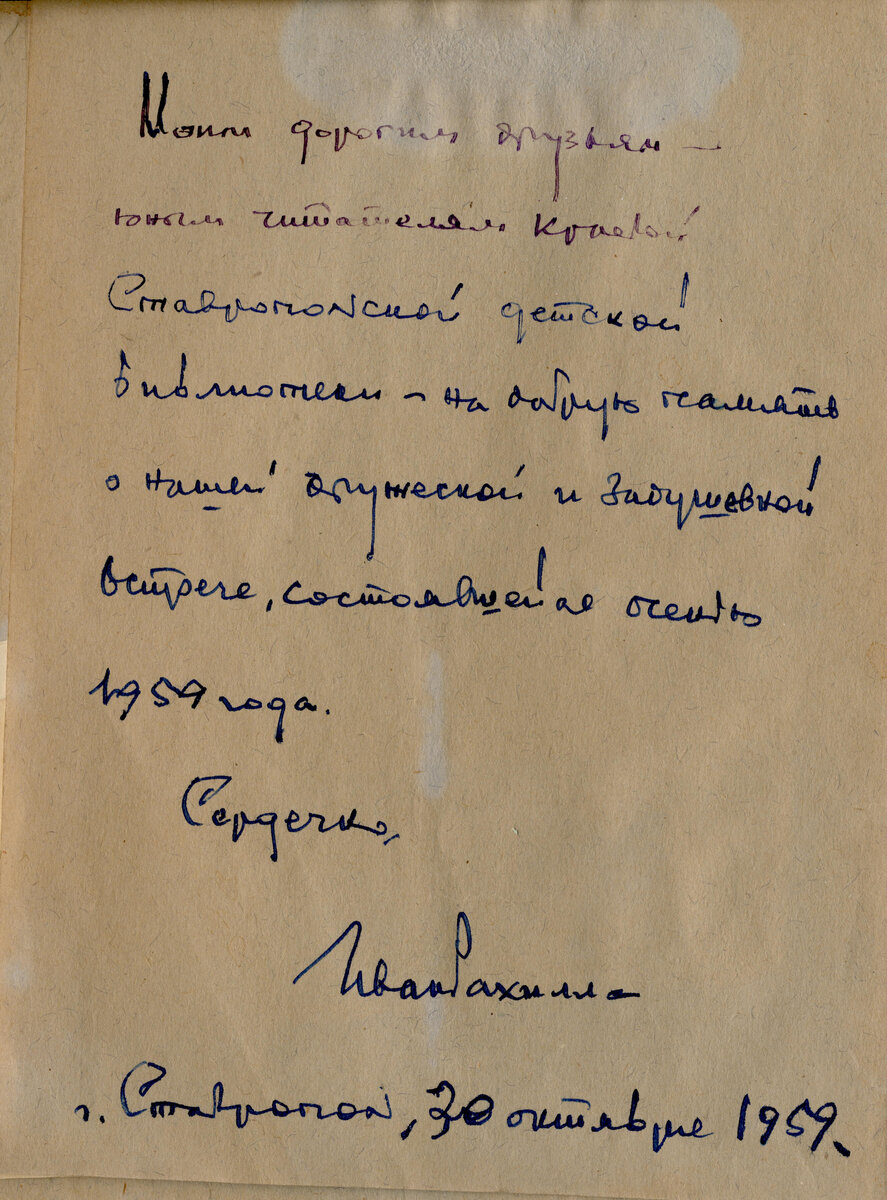 Моим дорогим друзьям —
юным читателям Краевой
Ставропольской детской
библиотеки — на добрую память
о нашей дружеской и задушевной
встрече, состоявшейся осенью
1959 года.
Сердечно,
Иван Рахилло
г. Ставрополь, 30 октября 1959.